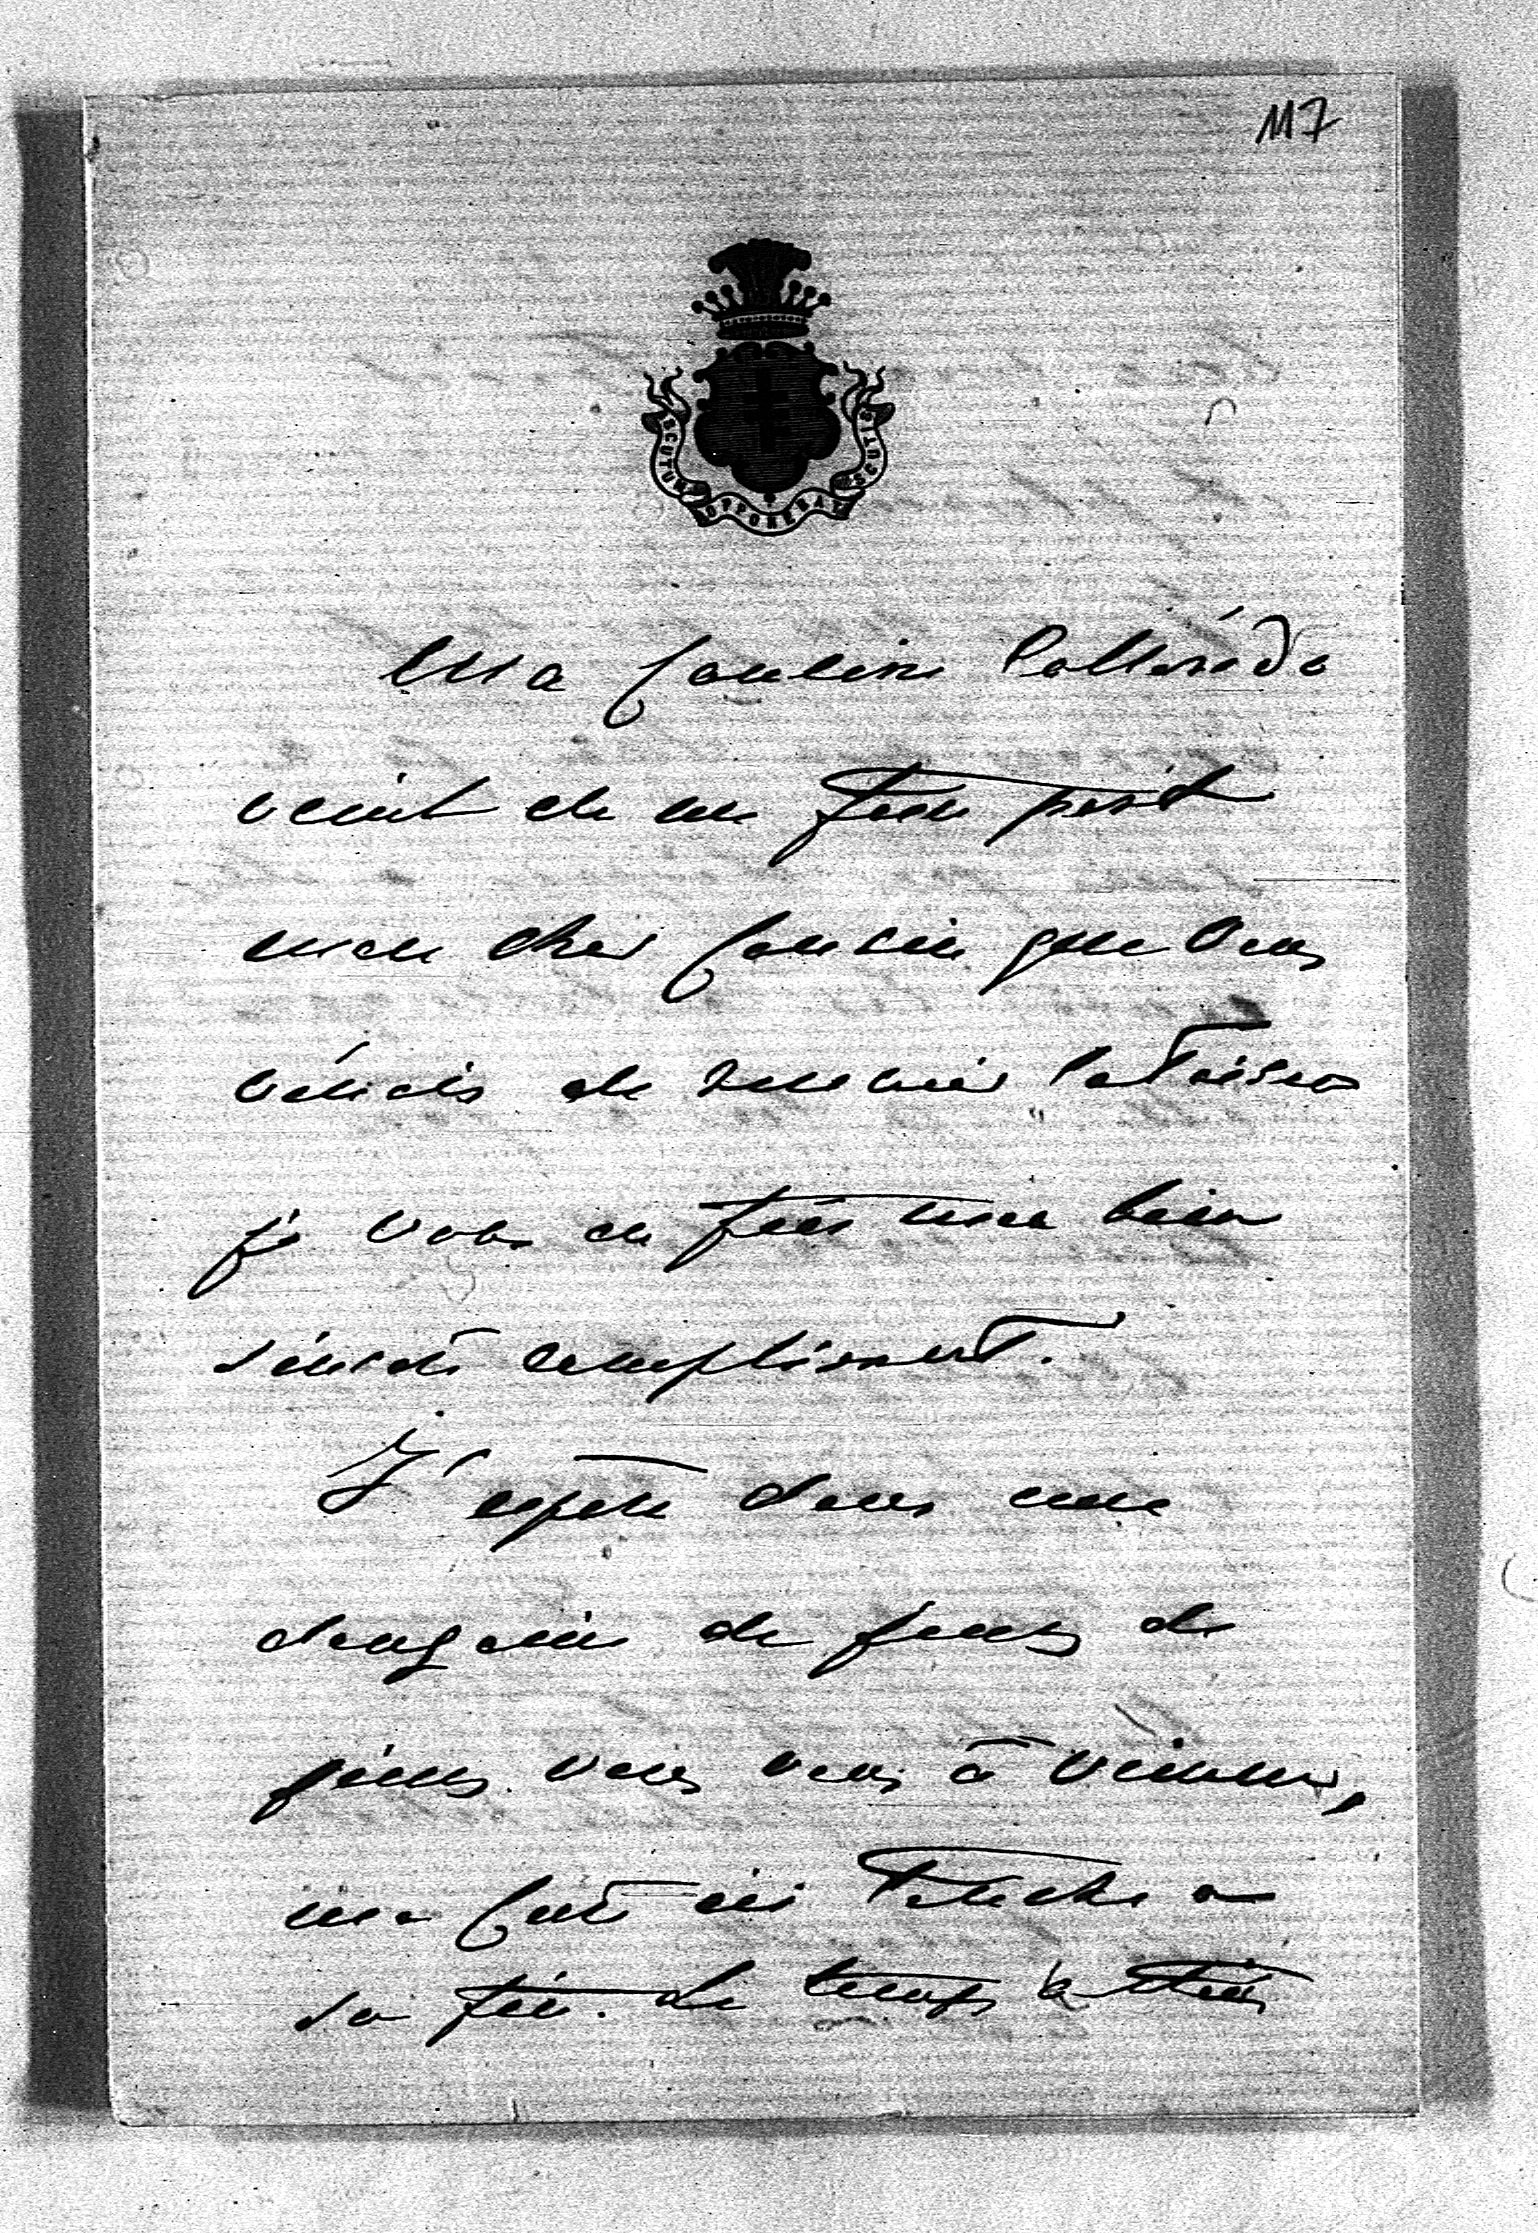 117
SCUTUM OPPONEBAT SCUTIS
Ma Cousine Colloredo
vient de me
mon cher Cousin que Vous
venez de recevoir la Toison
je Vous en fais mon bien
sincère compliment.
J'espère dans une
douzaine de jours de
Vous à Vienne,
ma touche a
sa fin. Le temps